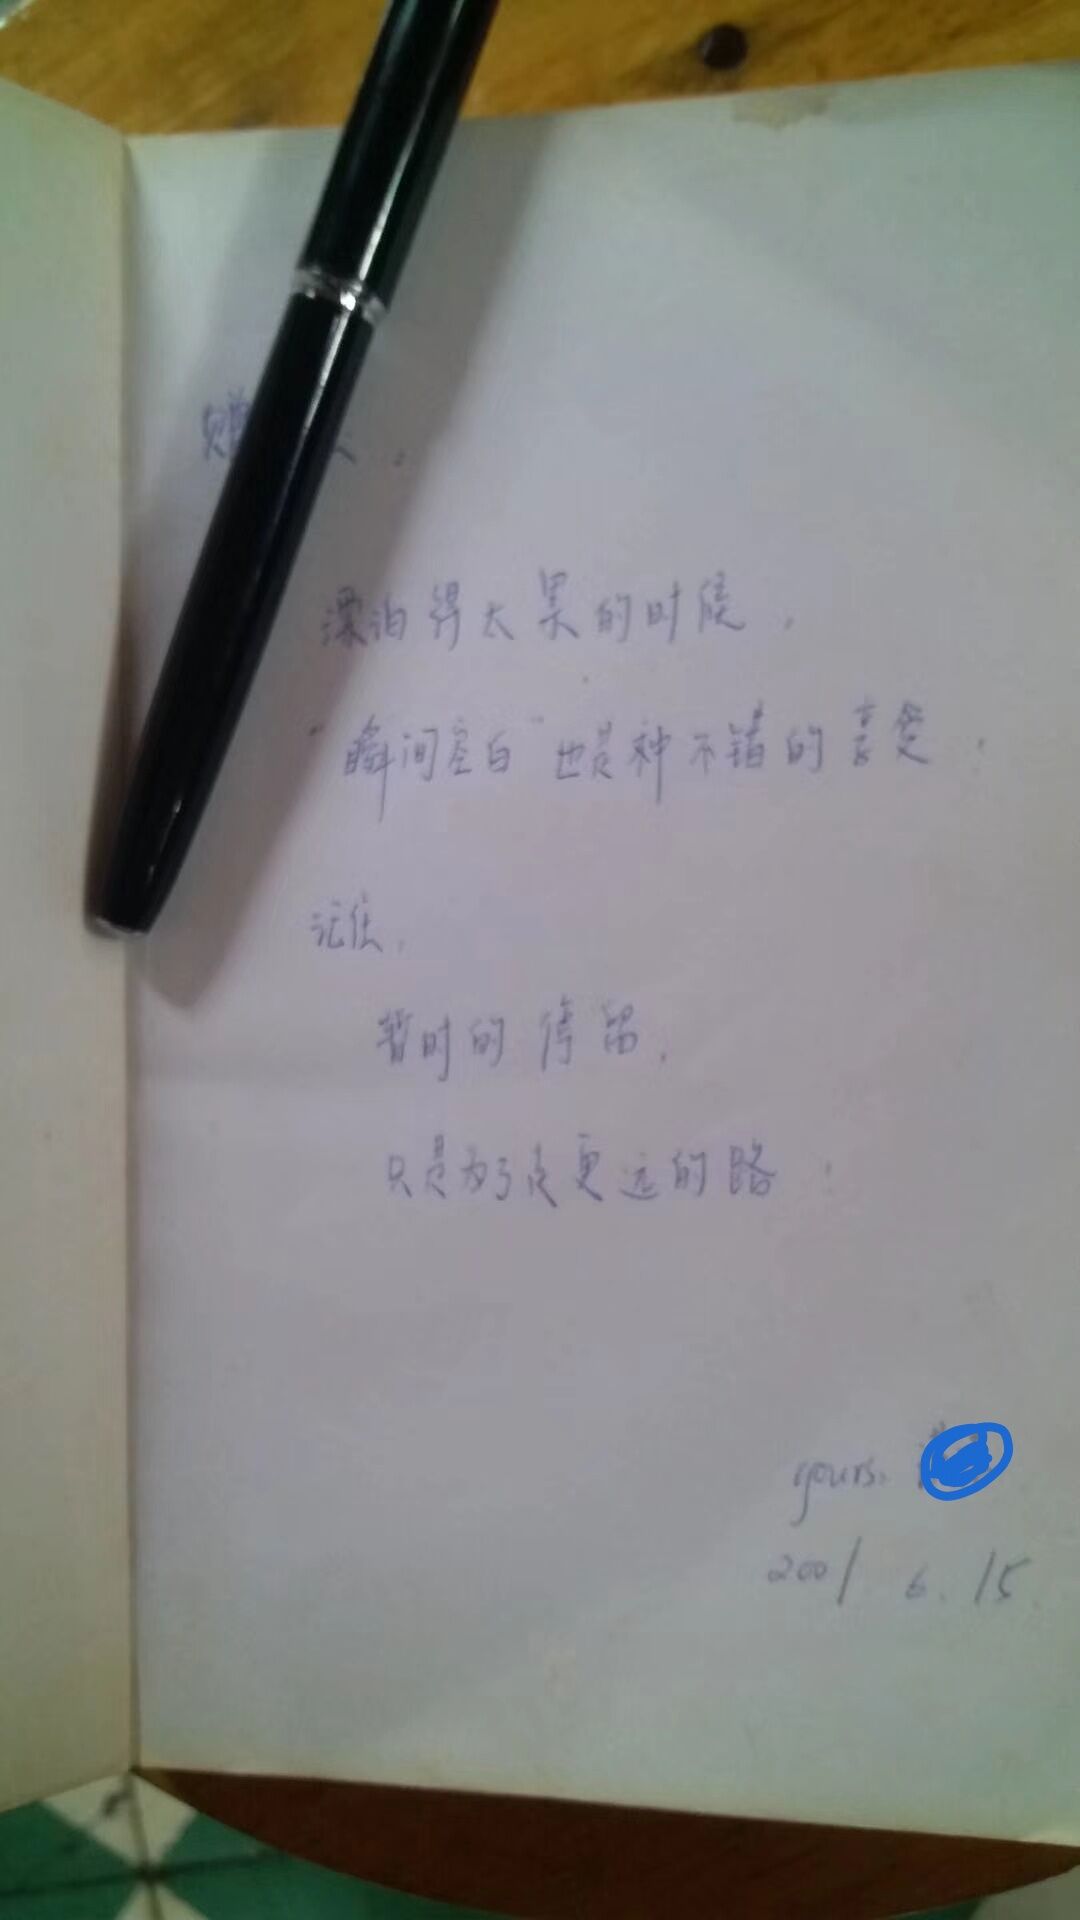 赠
漂泊得太累的时候，
“瞬间空白”也是种不错的享受．
记住，
暂时的停留，
只是为了走更远的路！
yours.
2001 6. 15